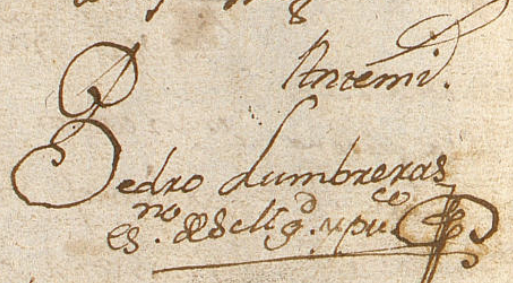 Antemi.
Pedro Lumbreras
es.no de su Mg.d y pu.co